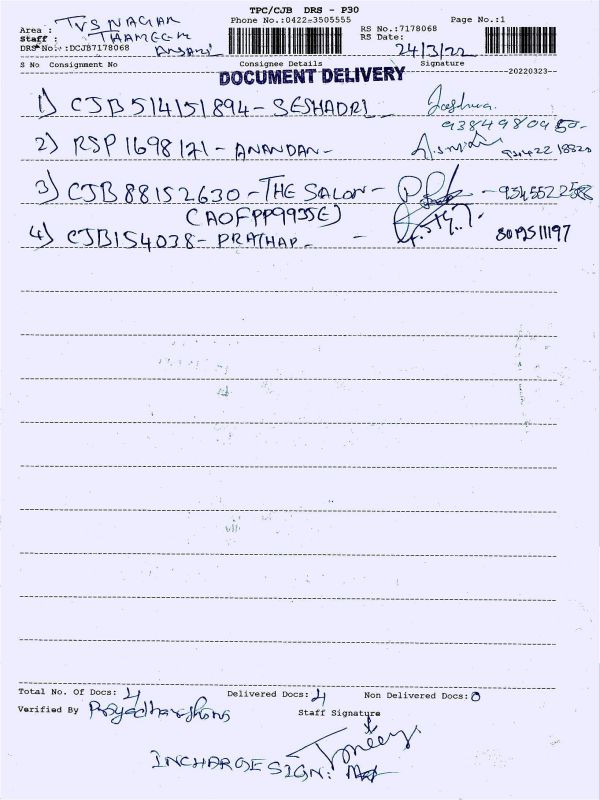 TPC/CJB DRS - P30
Phone No.:0422-3505555 Page No.:1
Area : TVS NAGAR
Staff : THAMEEM ANSARI
DRS No.:DCJ87178068
RS No.:7178068
RS Date: 24/3/22
S No Consignment No Consignee Details Signature
20220323
DOCUMENT DELIVERY
1) CJB514151894 - SESHADRI Joshua
9384980950
2) RSP1698171 - ANANDAN -
3) CJB88152630 - THE SALON -
(AOFPP9935E)
4) CJB154038 - PRATHAP - 8012511197
Total No. Of Docs: 4 Delivered Docs: 4 Non Delivered Docs: 0
Verified By
Staff Signature
INCHARGE SIGN: